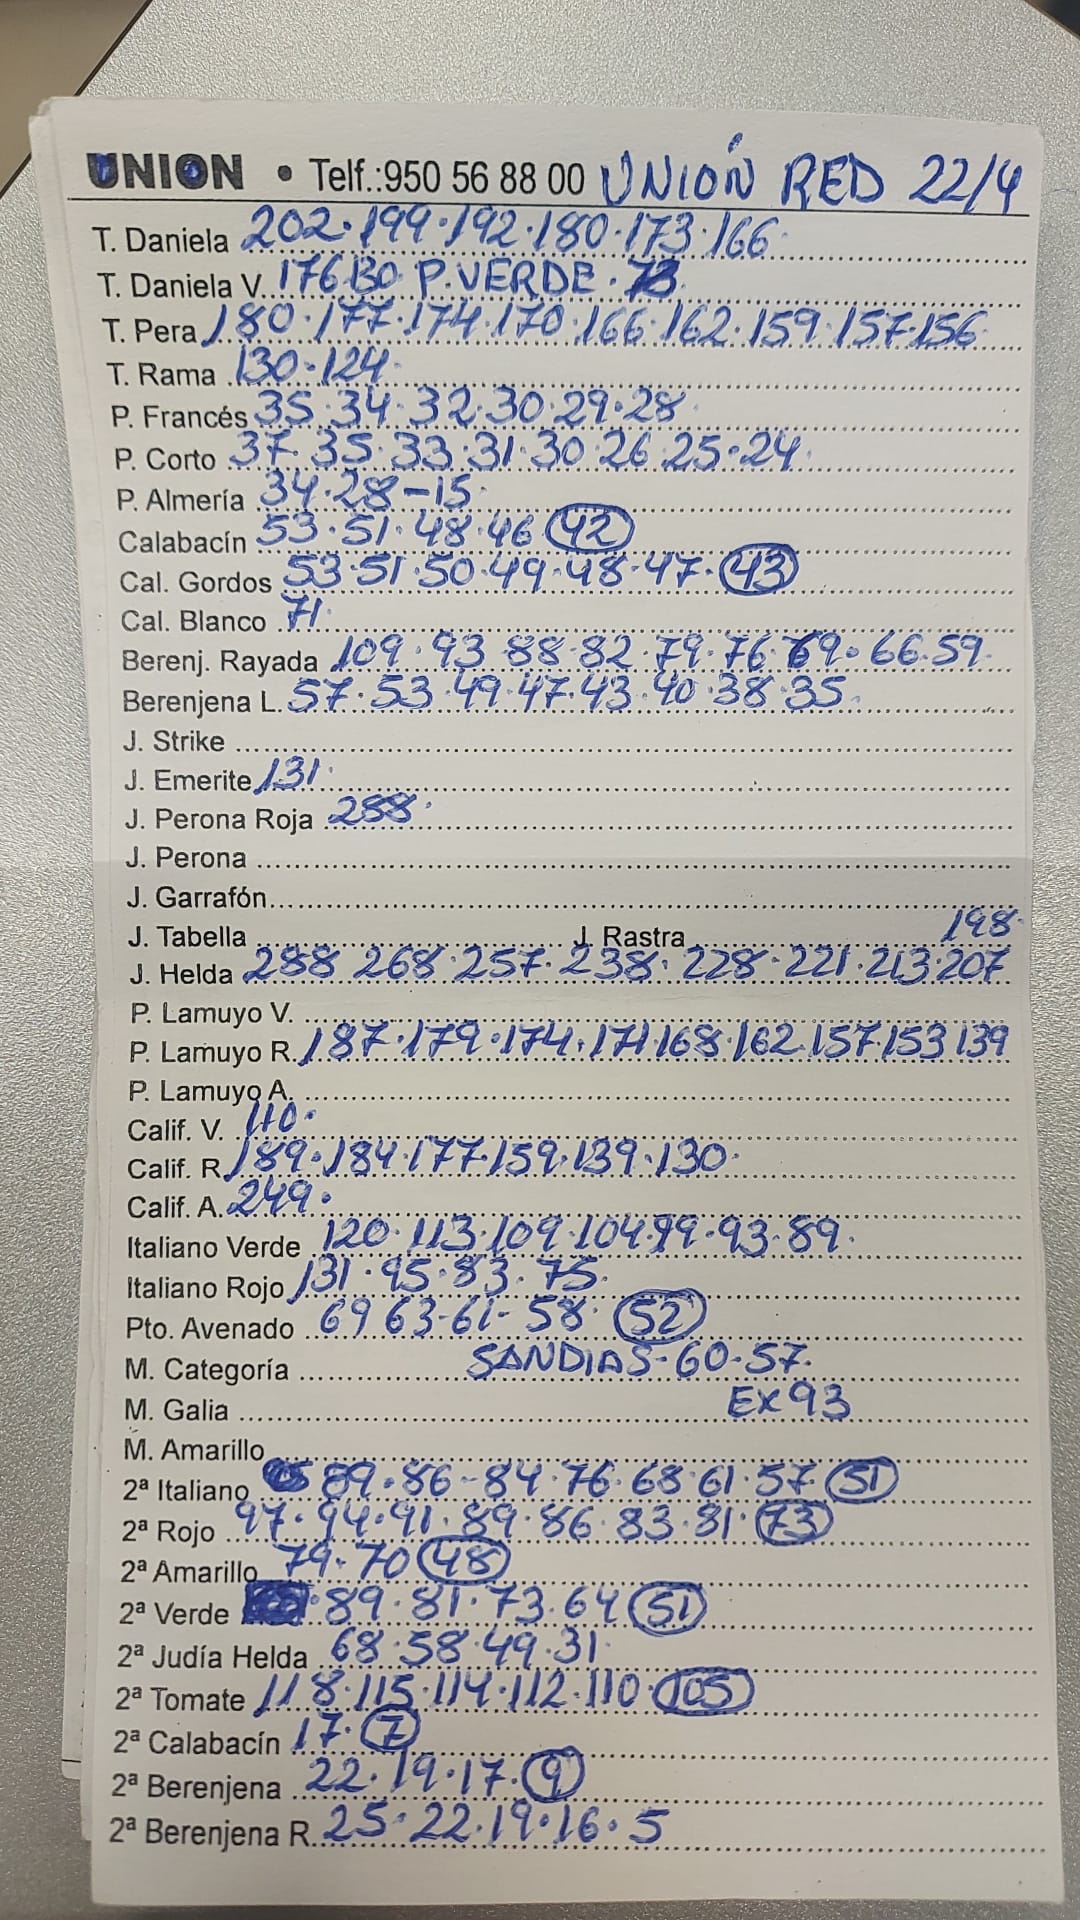 UNION • Telf.:950 56 88 00 UNIÓN RED 22/4
T. Daniela 202·199·192·180·173·166
T. Daniela V. 176 130 P.VERDE·73
T. Pera 180·177·174·170·166·162·159·157·156
T. Rama 130·124
P. Francés 35·34·32·30·29·28
P. Corto 37·35·33·31·30·26·25·24
P. Almería 34·28-15
Calabacín 53·51·48·46 42
Cal. Gordos 53·51·50·49·48·47·43
Cal. Blanco 71
Berenj. Rayada 109·93 88·82·79·76·69·66·59
Berenjena L. 57·53·49·47·43·40·38·35
J. Strike
J. Emerite 131
J. Perona Roja 288
J. Perona
J. Garrafón
J. Tabella J. Rastra 198
J. Helda 288 268·257·238·228·221·213·207
P. Lamuyo V.
P. Lamuyo R. 187·179·174·171·168·162·157 153 139
P. Lamuyo A.
Calif. V. 110·
Calif. R 189·184·177·159·139·130
Calif. A. 249·
Italiano Verde 120·113·109·104·99·93·89
Italiano Rojo 131·95·83·75
Pto. Avenado 69 63-61-58· 52
M. Categoría SANDIAS-60-57
M. Galia Ex 93
M. Amarillo
2ª Italiano 89·86-84·76·68·61·57·51
2ª Rojo 97·94·91·89·86·83·81·73
2ª Amarillo 79·70 48
2ª Verde ·89·81·73·64 51
2ª Judía Helda 68·58·49·31
2ª Tomate 118·115·114·112·110·105
2ª Calabacín 17·7
2ª Berenjena 22·19·17·9
2ª Berenjena R. 25·22·19·16·5